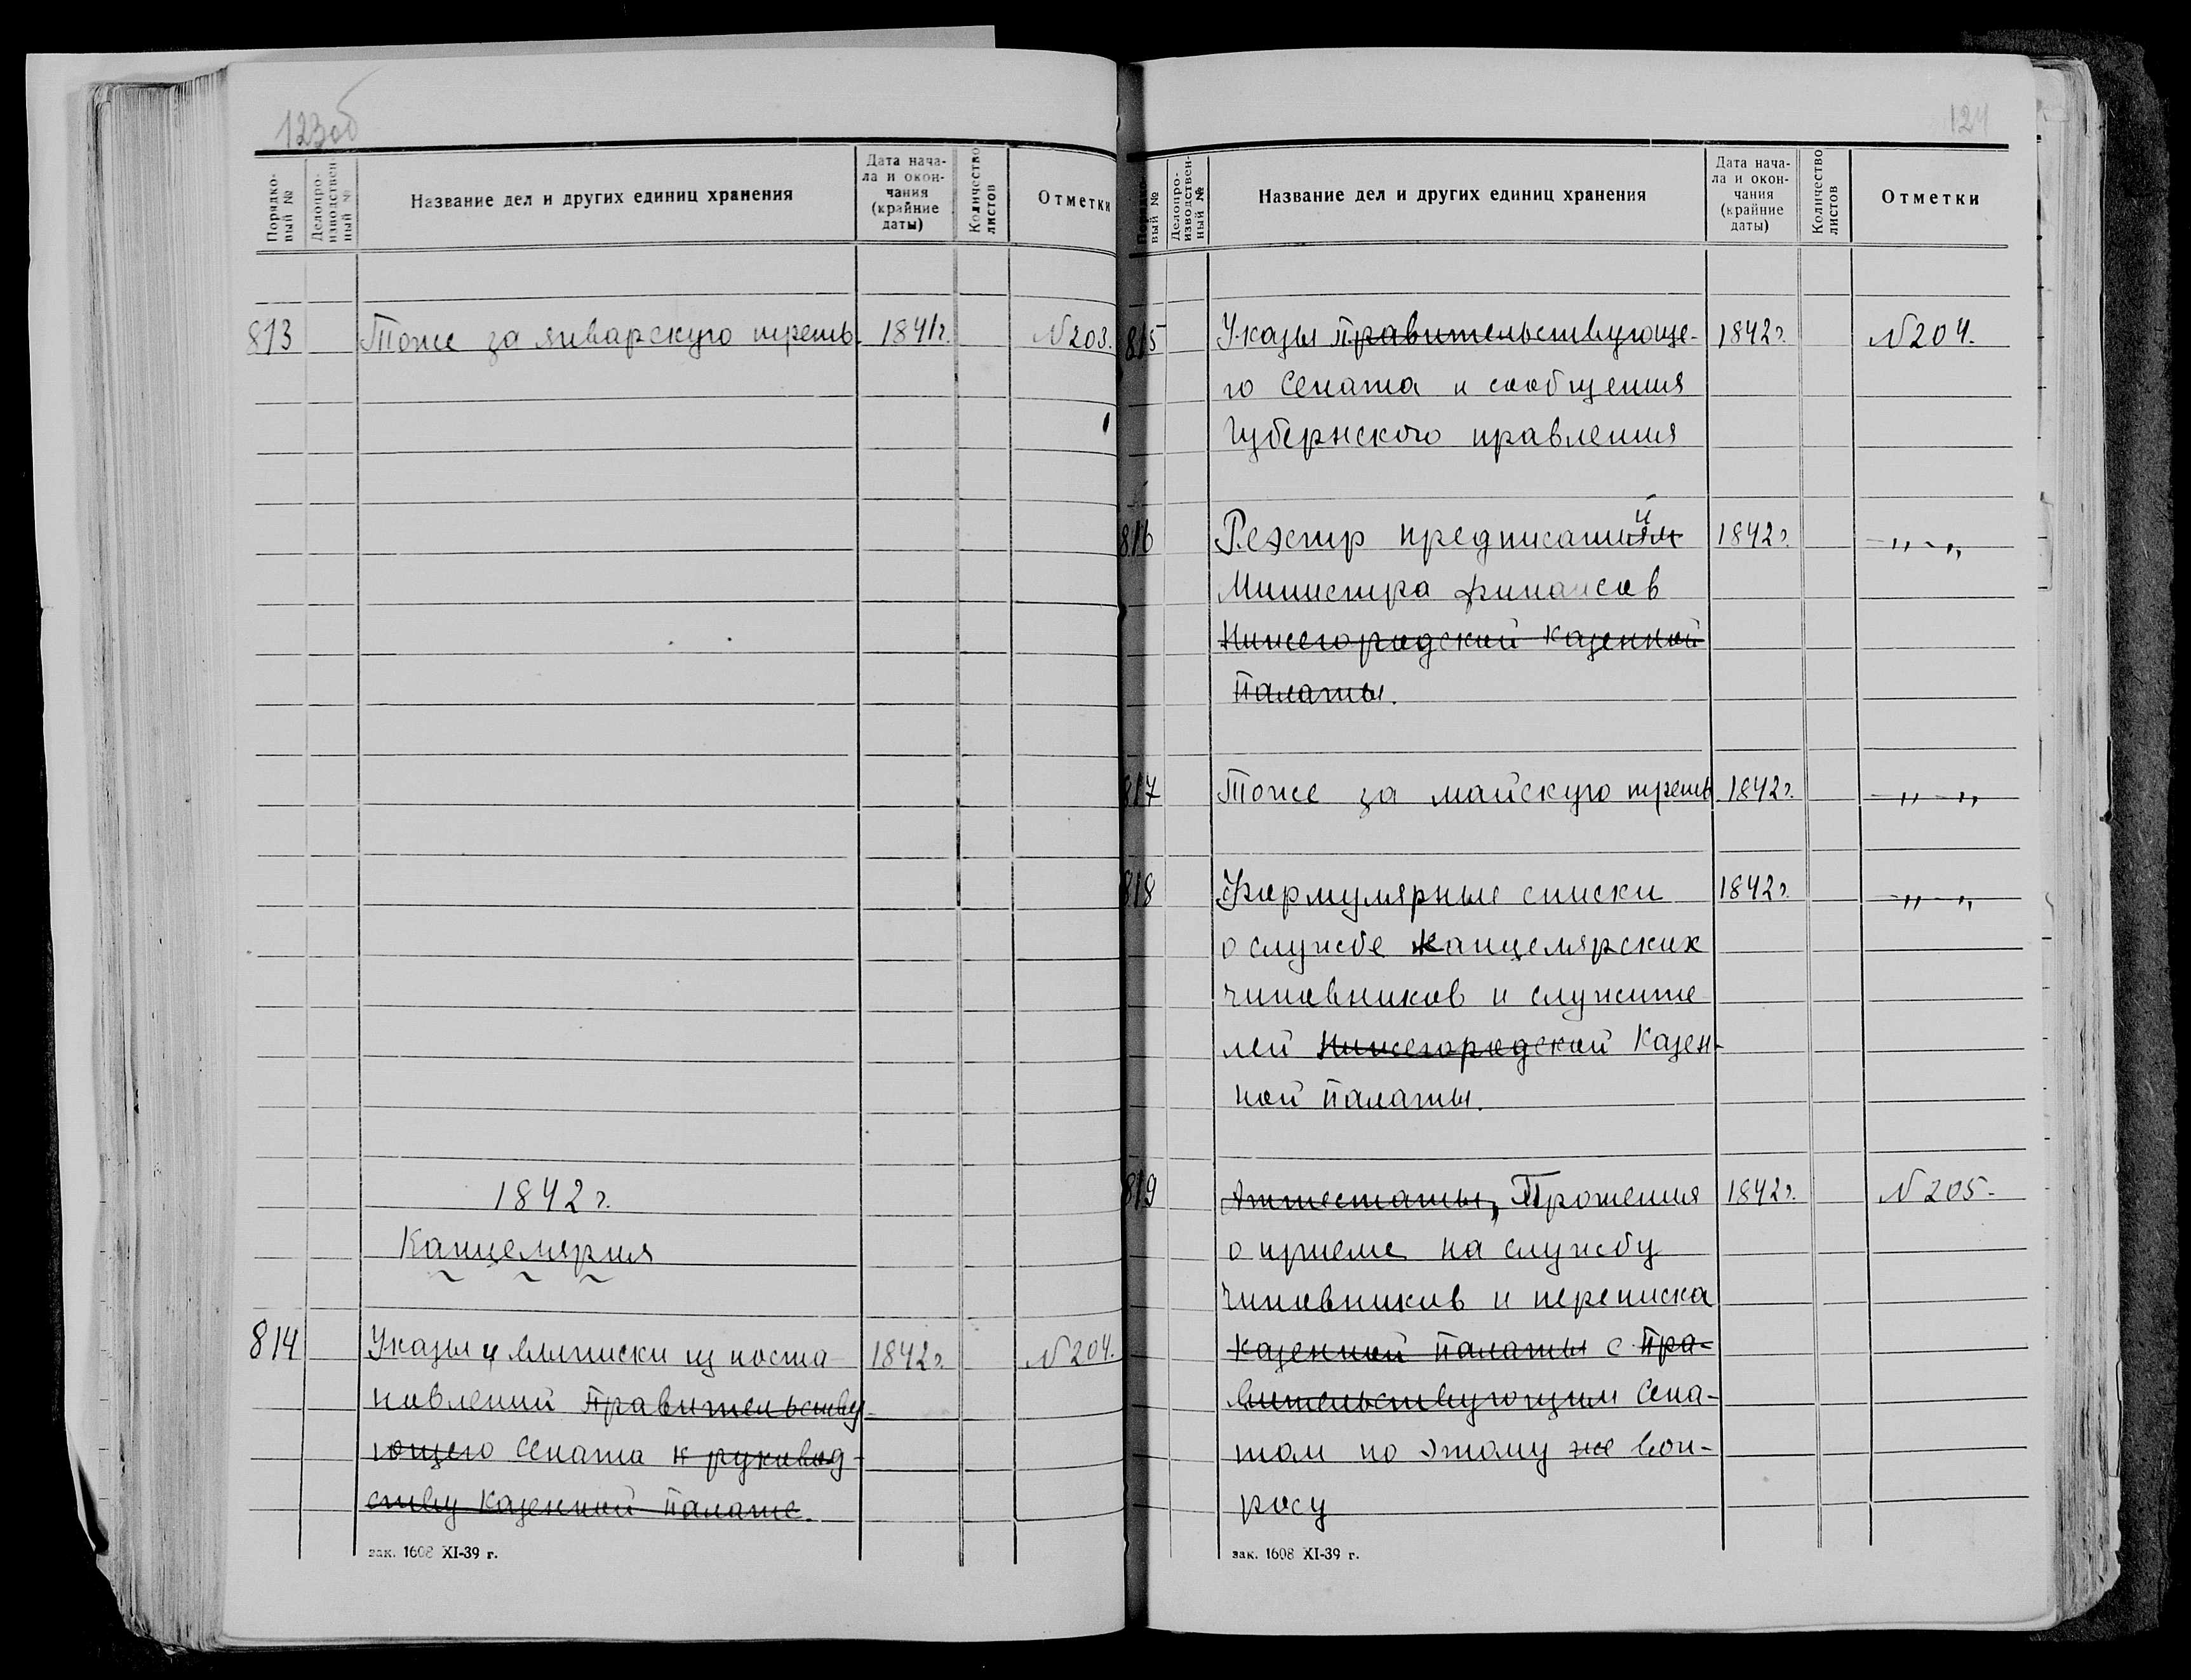 123об
Порядко-
вый №
Делопро-
изводствен-
ный №
Название дел и других единиц хранения
Дата нача-
ла и окон-
чания
(крайние
даты)
Количество
листов
Отметки
813 Тоже за январскую треть 1841г. №203.
1842 г.
Канцелярия
814 Указы и выписки из поста- 1842 г. №204.
новлений Правительству-
ющего Сената к руковод-
ству Казенной Палате.
зак. 1608 XI-39 г.
124
Порядко-
вый №
Делопро-
изводствен-
ный №
Название дел и других единиц хранения
Дата нача-
ла и окон-
чания
(крайние
даты)
Количество
листов
Отметки
815 Указы Правительствующе- 1842 г. №204.
го Сената и сообщения
Губернского правления
816 Реэстр предписаниям й 1842 г. -„-„
Министра финансов
Нижегородской Казенной
Палаты.
817 Тоже за майскую треть 1842 г. -„-„
818 Формулярные списки 1842 г. -„-„
о службе канцелярских
чиновников и служите
лей Нижегородской Казен-
ной Палаты.
819 Аттестаты, Прошения 1842 г. №205.
о приеме на службу
чиновников и переписка
Казенной Палаты с Пра-
вительствующим Сена-
том по этому же воп-
росу
зак. 1608 XI-39 г.